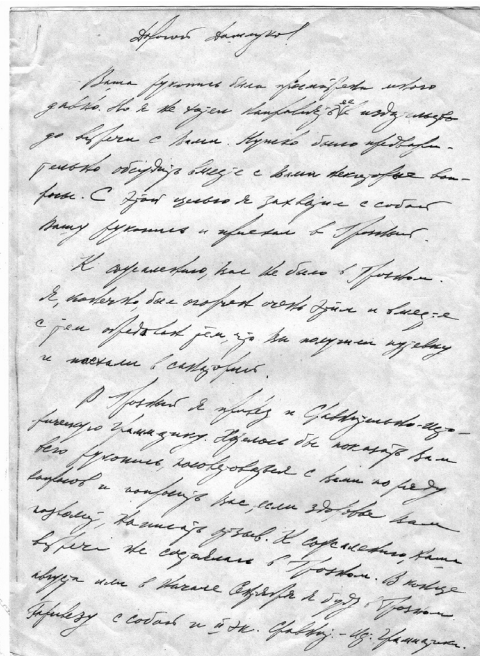 Дорогой Дашлуко!
Ваша рукопись была просмотрена много
давно. Но я не хотел направлять ее в издательство
до встречи с Вами. Нужно было предвари-
тельно обсудить вместе с Вами некоторые воп-
росы. С этой целью я захватил с собой
Вашу рукопись и приехал в Грозный.
К сожалению, Вас не было в Грозном.
Я, конечно был огорчен очень этим и вместе
с тем обрадован тем, что Вы получили путевку
и поехали в санаторий.
В Грозный я привез и Сравнительно-исто-
рическую грамматику. Хотелось бы показать Вам
рукопись, посоветоваться с Вами по ряду
вопросов и попросить Вас, если здоровье Вам
позволит, написать отзыв. К сожалению, наша
встреча не состоялась в Грозном. В конце
августа или в начале сентября я буду в Грозном
Привезу с собой и экз. Сравнит.-ис. грамматики.